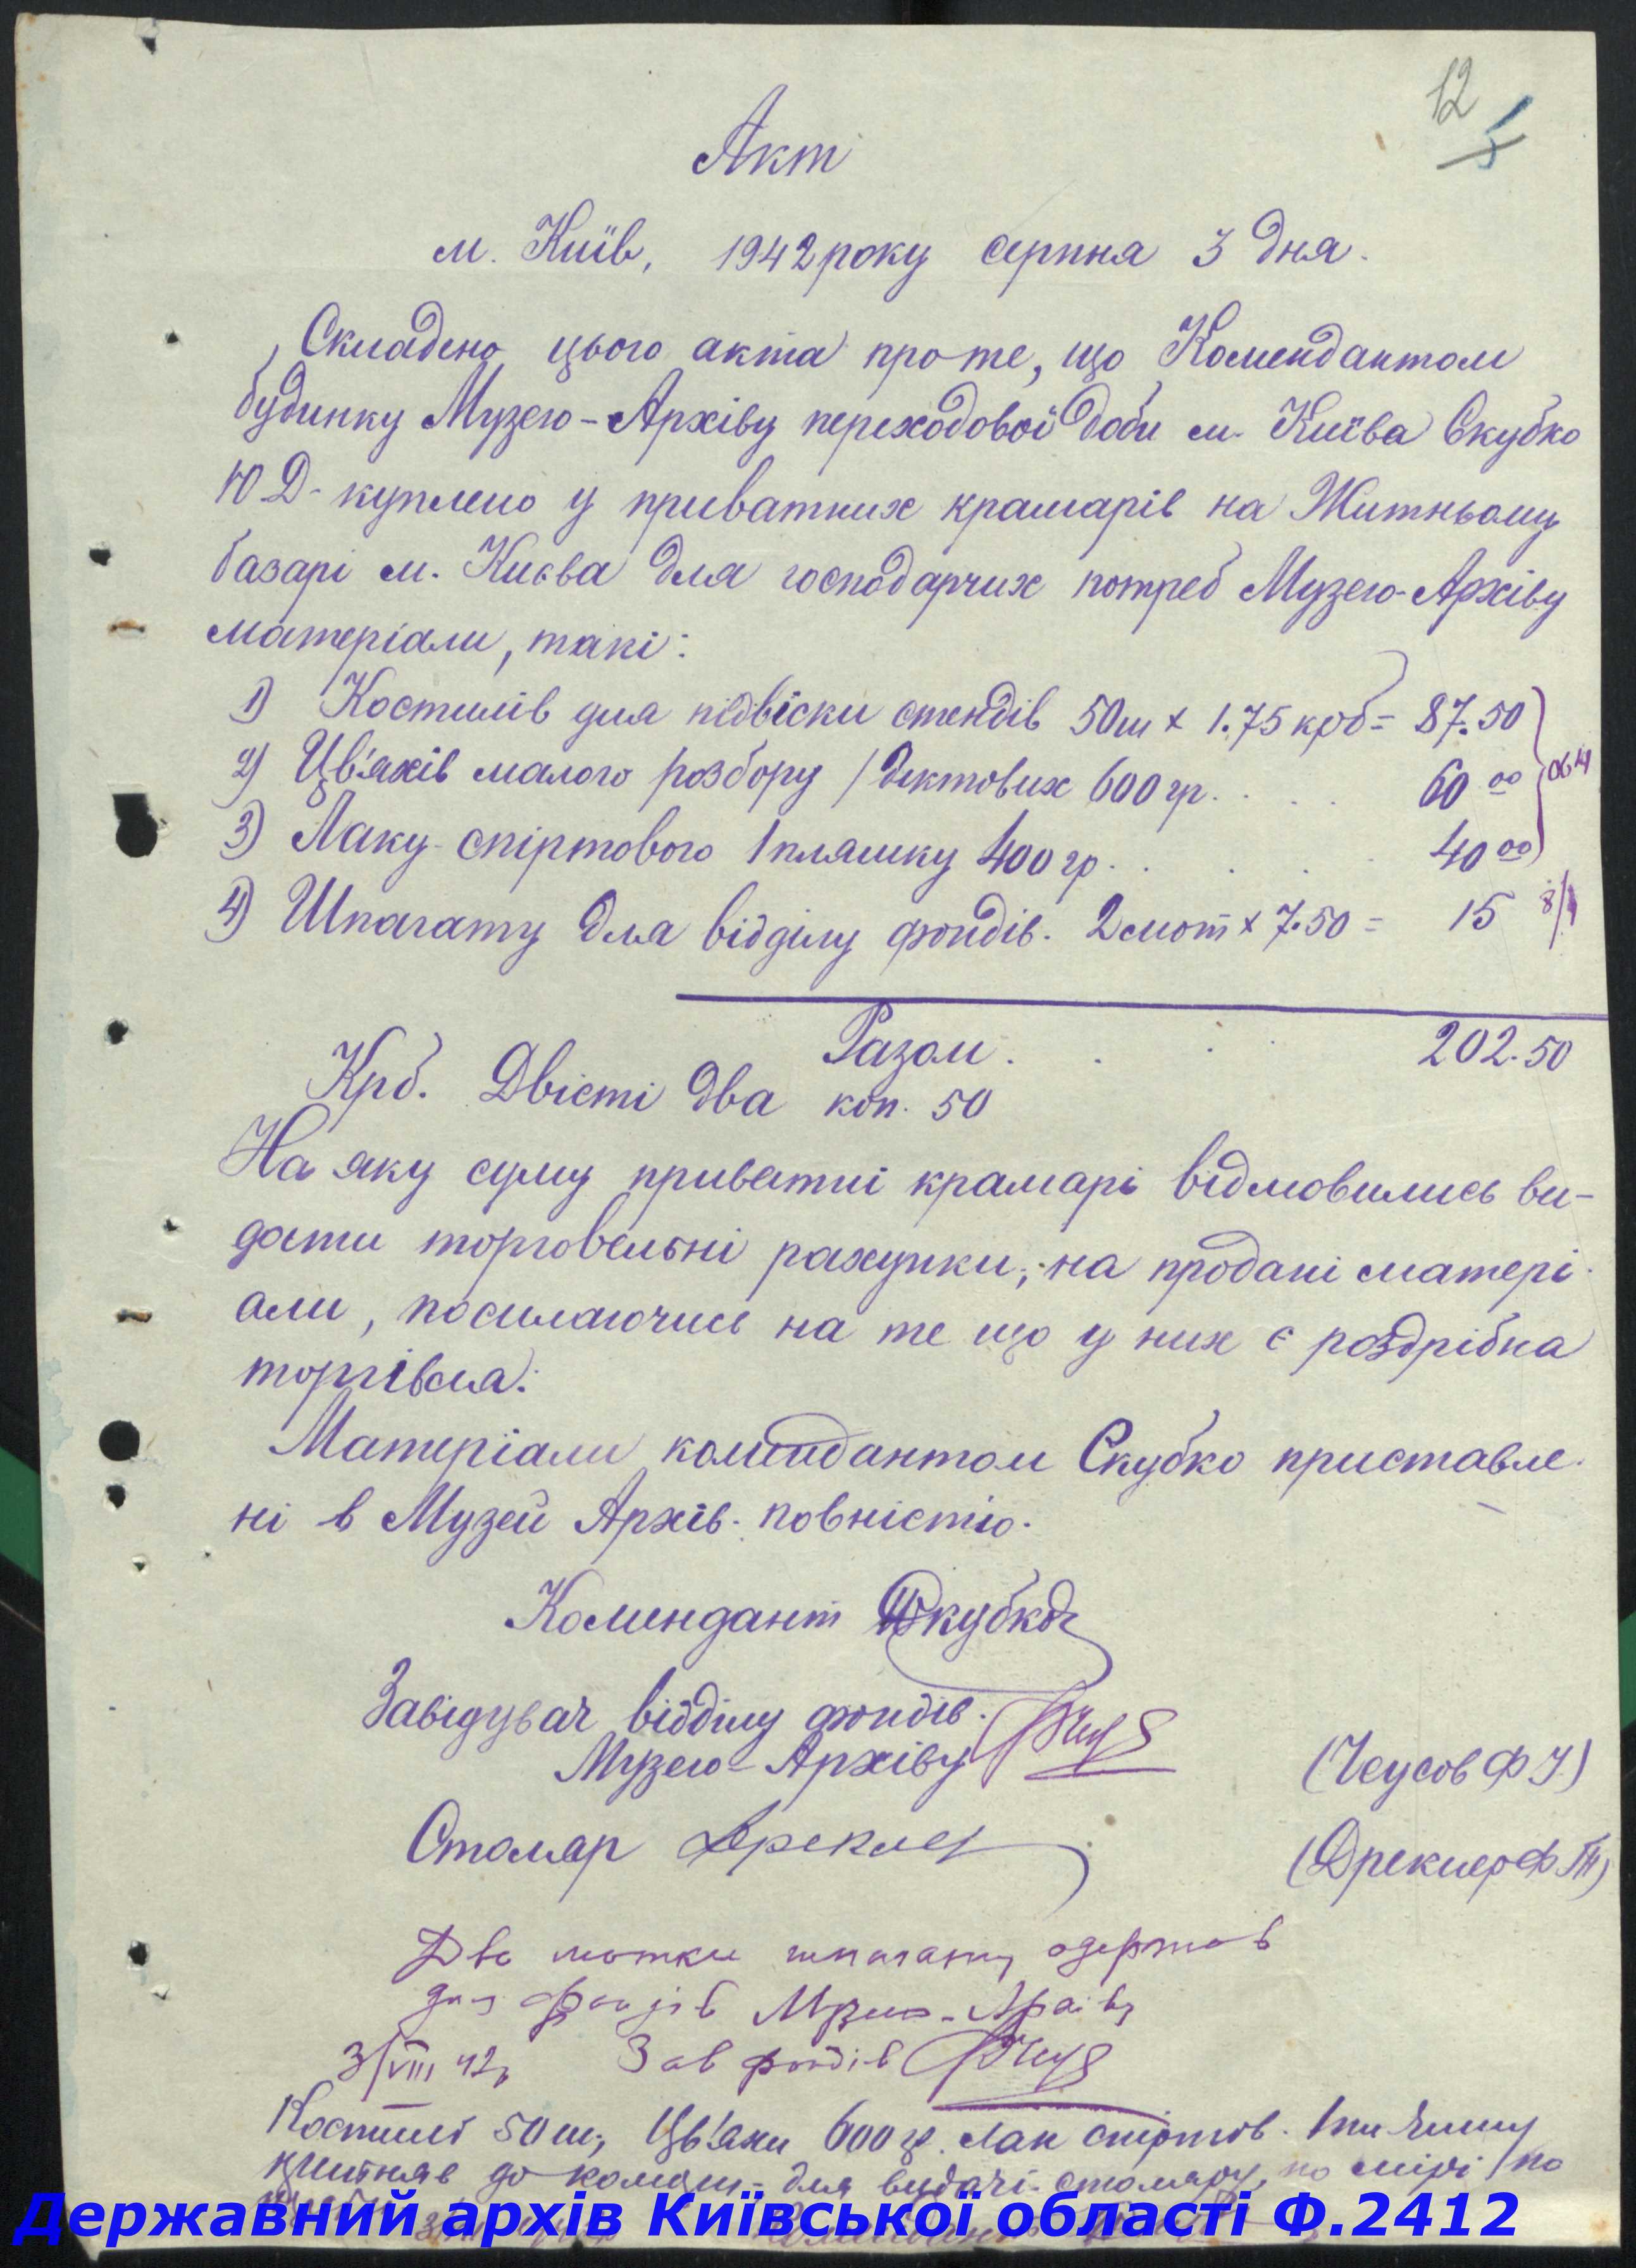 12
5
Акт
м. Київ, 1942 року серпня 3 дня.
Складено цього акта про те, що Комендантом
будинку Музею-Архіву переходової доби м. Київа Скубко
Ю Д- куплено у приватних крамарів на Житньому
базарі м. Києва для господарчих потреб Музею-Архіву
матеріали, такі:
1) Костилів для підвіски стендів 50ш x 1.75 крб = 87.50
2) Цв'яхів малого розбору / диктових 600 гр. . . . 60 00
3) Лаку спіртового 1 пляшку 400 гр. . . . . 40 00
4) Шпагату для відділу фондів. 2 мот x 7.50 = 15
Разом. . . . 202.50
Крб. Двісті два коп. 50
На яку суму приватні крамарі відмовились ви-
дати торговельні рахунки, на продані матері-
али, посилаючись на те що у них є роздрібна
торгівля.
Матеріали комендантом Скубко приставле-
ні в Музей Архів. повністю.
Комендант Скубко
Завідувач відділу фондів.
Музею-Архіву (Чеусов Ф І)
Столяр Дреклер (Дреклер Ф Т)
Два мотки шпагату одержав
для фондів Музею-Архіву
3/VIII 42 р Зав фондів
Костилі 50 ш, Цв'яхи 600 гр. Лак спіртов. 1 пляшку
прийняв до комори для видачі столяру, по мірі по
Державний архів Київської області Ф.2412